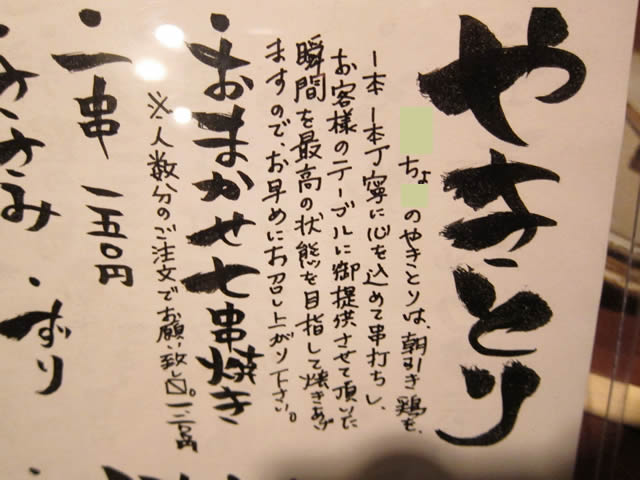 やきとり
ちょ のやきとりは、朝引き鶏を、
一本一本丁寧に心を込めて串打ちし、
お客様のテーブルに御提供させて頂いた
瞬間を最高の状態を目指して焼きあげ
ますのでお早めにお召し上がり下さい。
・おまかせ七串焼き
※人数分のご注文でお願い致し〼。
・一串 一五〇円
・ささみ ・ずり